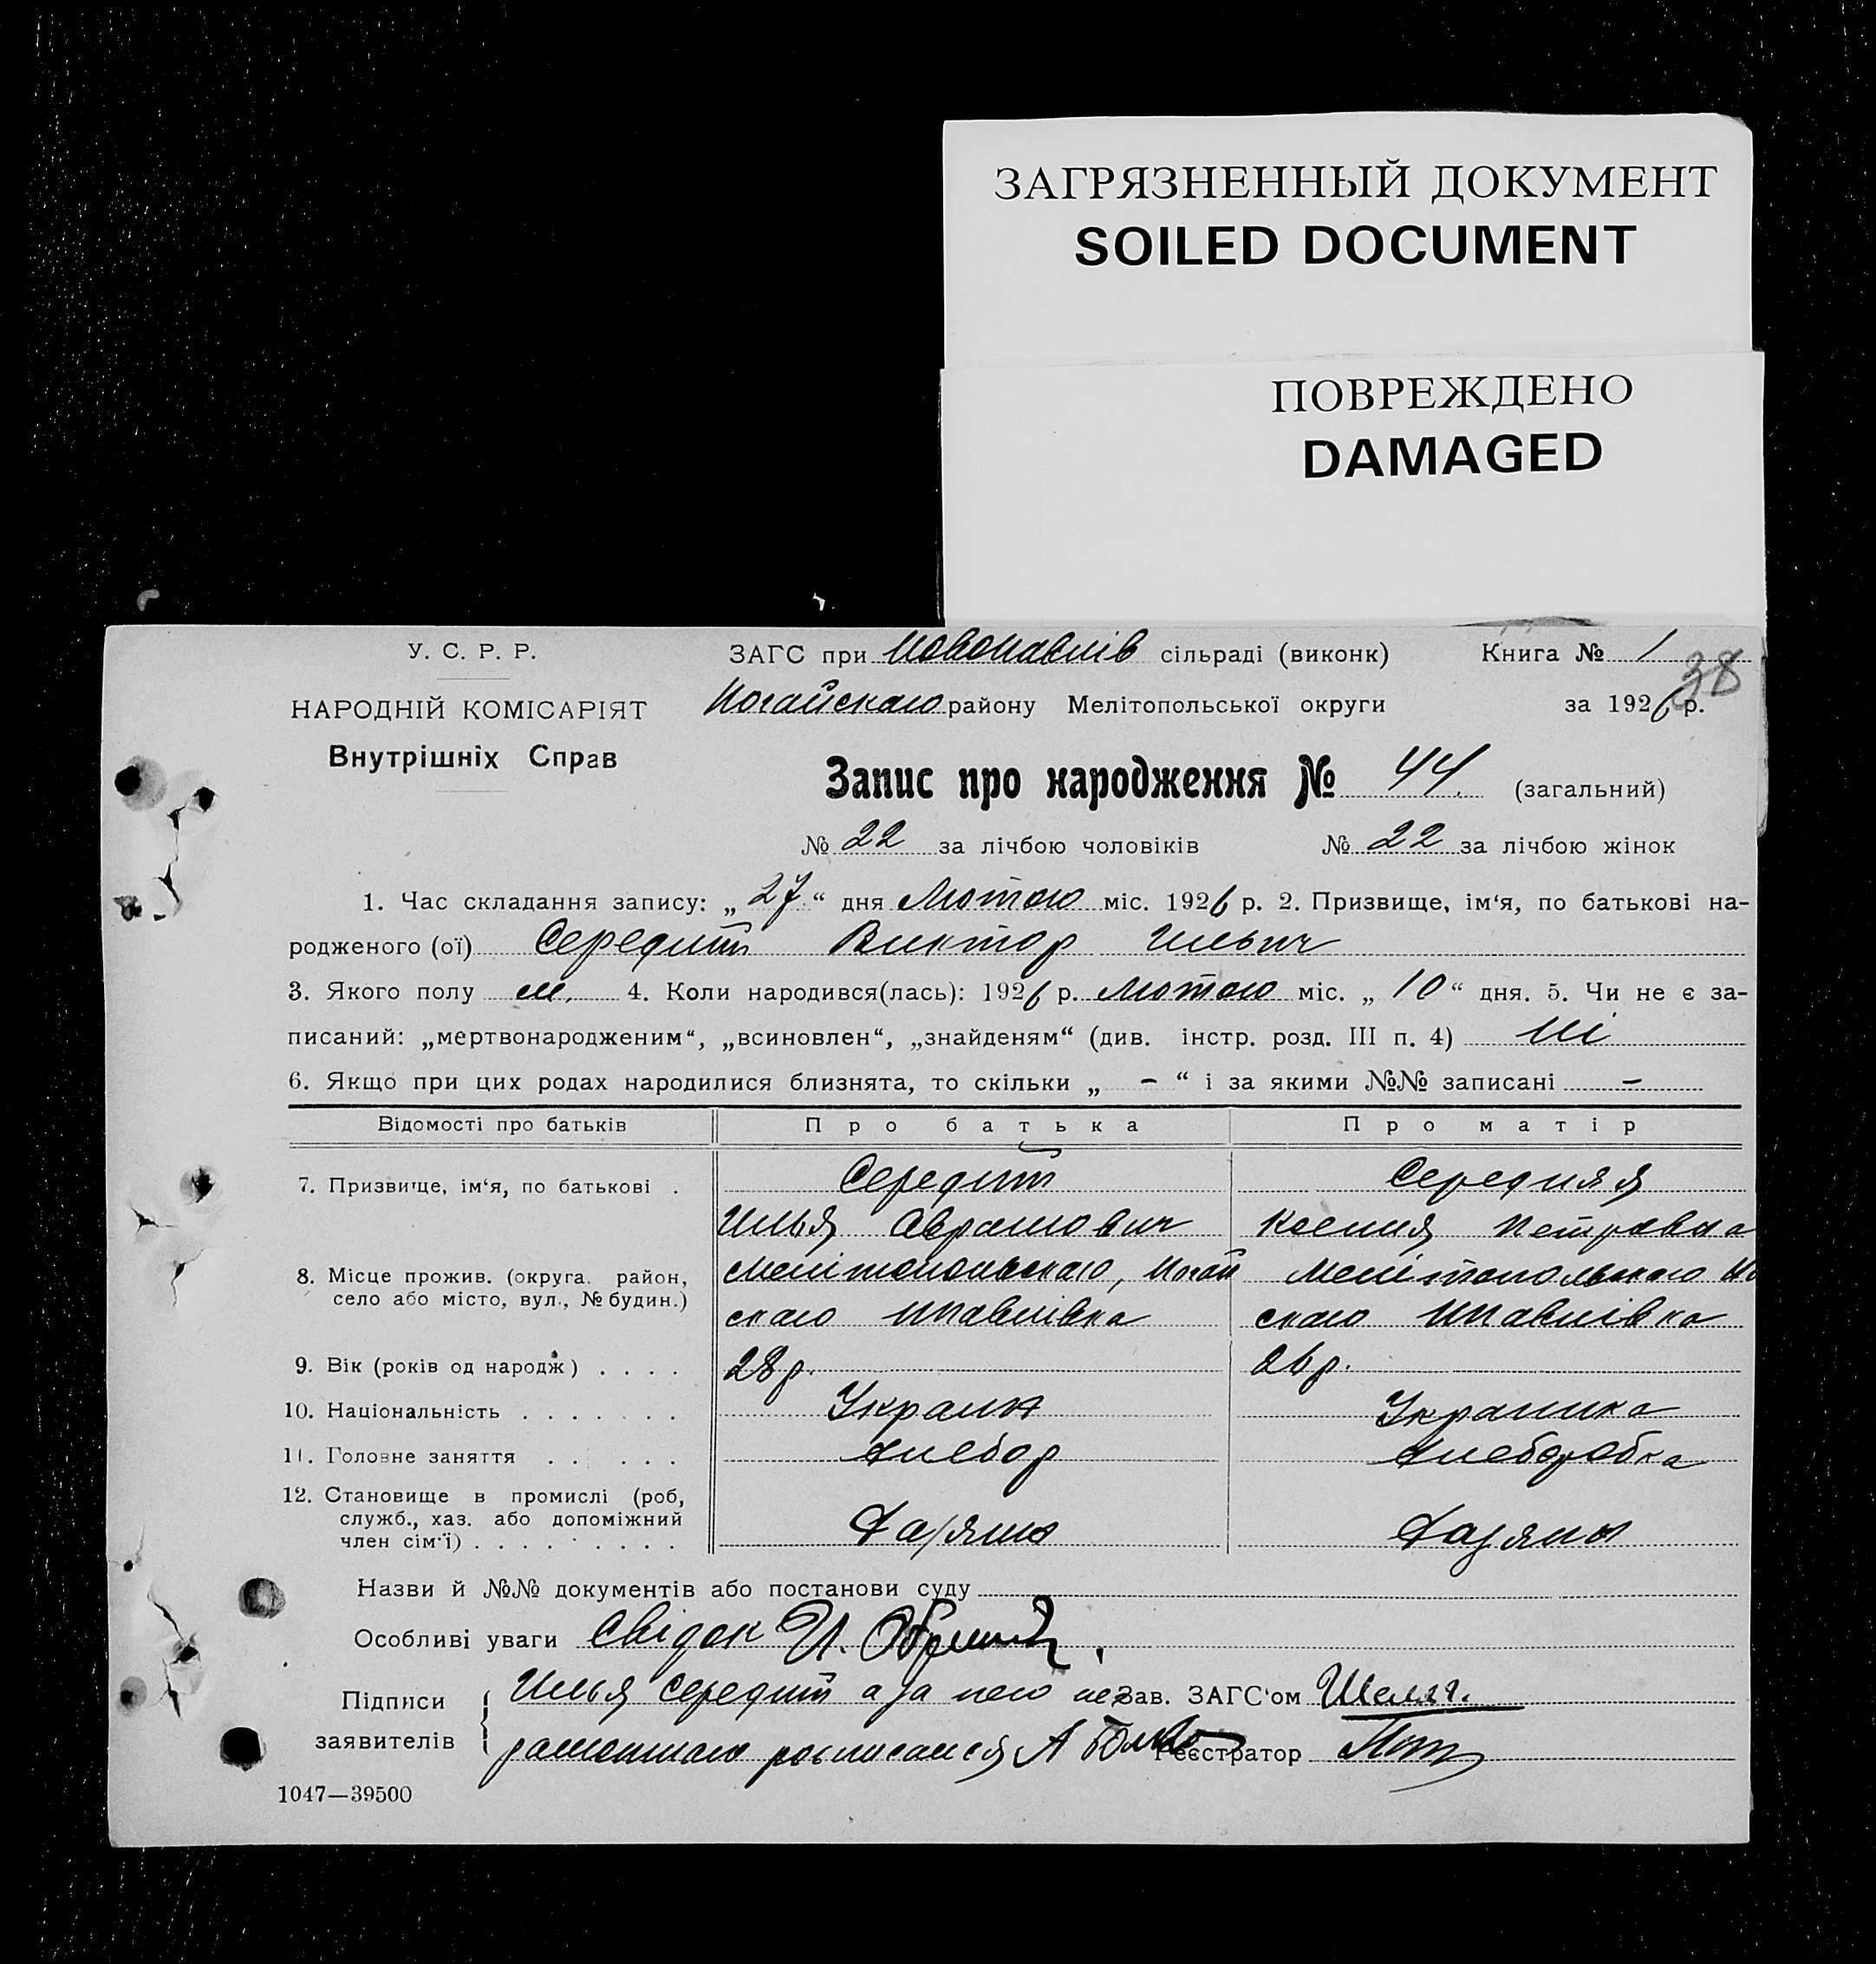 ЗАГРЯЗНЕННЫЙ ДОКУМЕНТ
SOILED DOCUMENT
ПОВРЕЖДЕНО
DAMAGED
У. С. Р. Р.
НАРОДНІЙ КОМІСАРІЯТ
Внутрішніх Справ
ЗАГС при Новопавлів сільраді (виконк) Книга № 1
38
Ногайскаго району Мелітопольської округи за 1926 р.
Запис про народження № 44. (загальний)
№ 22 за лічбою чоловіків № 22 за лічбою жінок
1. Час складання запису: „ 27 “ дня Лютого міс. 1926 р. 2. Призвище, ім‘я, по батькові на-
родженого (ої) Середит Виктор Ильич
3. Якого полу м. 4. Коли народився(лась): 1926 р. Лютого міс. „ 10 “ дня. 5. Чи не є за-
писаний: „мертвонародженим“, „всиновлен“, „знайденям“ (див. інстр. розд. III п. 4) Ні
6. Якщо при цих родах народилися близнята, то скільки „ - “ і за якими №№ записані -
Відомості про батьків Про батька Про матір
7. Призвище, ім‘я, по батькові . Середит Середняя
Илья Аврамович Ксения Петровна
8. Місце прожив. (округа, район, Мелітопольскаго, Ногай Мелітопольскаго Но
село або місто, вул., № будин.) скаго Нпавлівка скаго Нпавлівка
9. Вік (років од народж) . . . . 28 р. 26 р.
10. Національність . . . . . . . Украин Украинка
11. Головне заняття . . . . . . Хлебор Хлеборобка
12. Становище в промислі (роб,
служб., хаз. або допоміжний
член сім‘ї) . . . . . . . . . Хазяин Хазяин
Назви й №№ документів або постанови суду
Особливі уваги Свідок И.
Підписи Илья Середит а за него не Зав. ЗАГС‘ом
заявителів росписался А Реєстратор
1047—39500